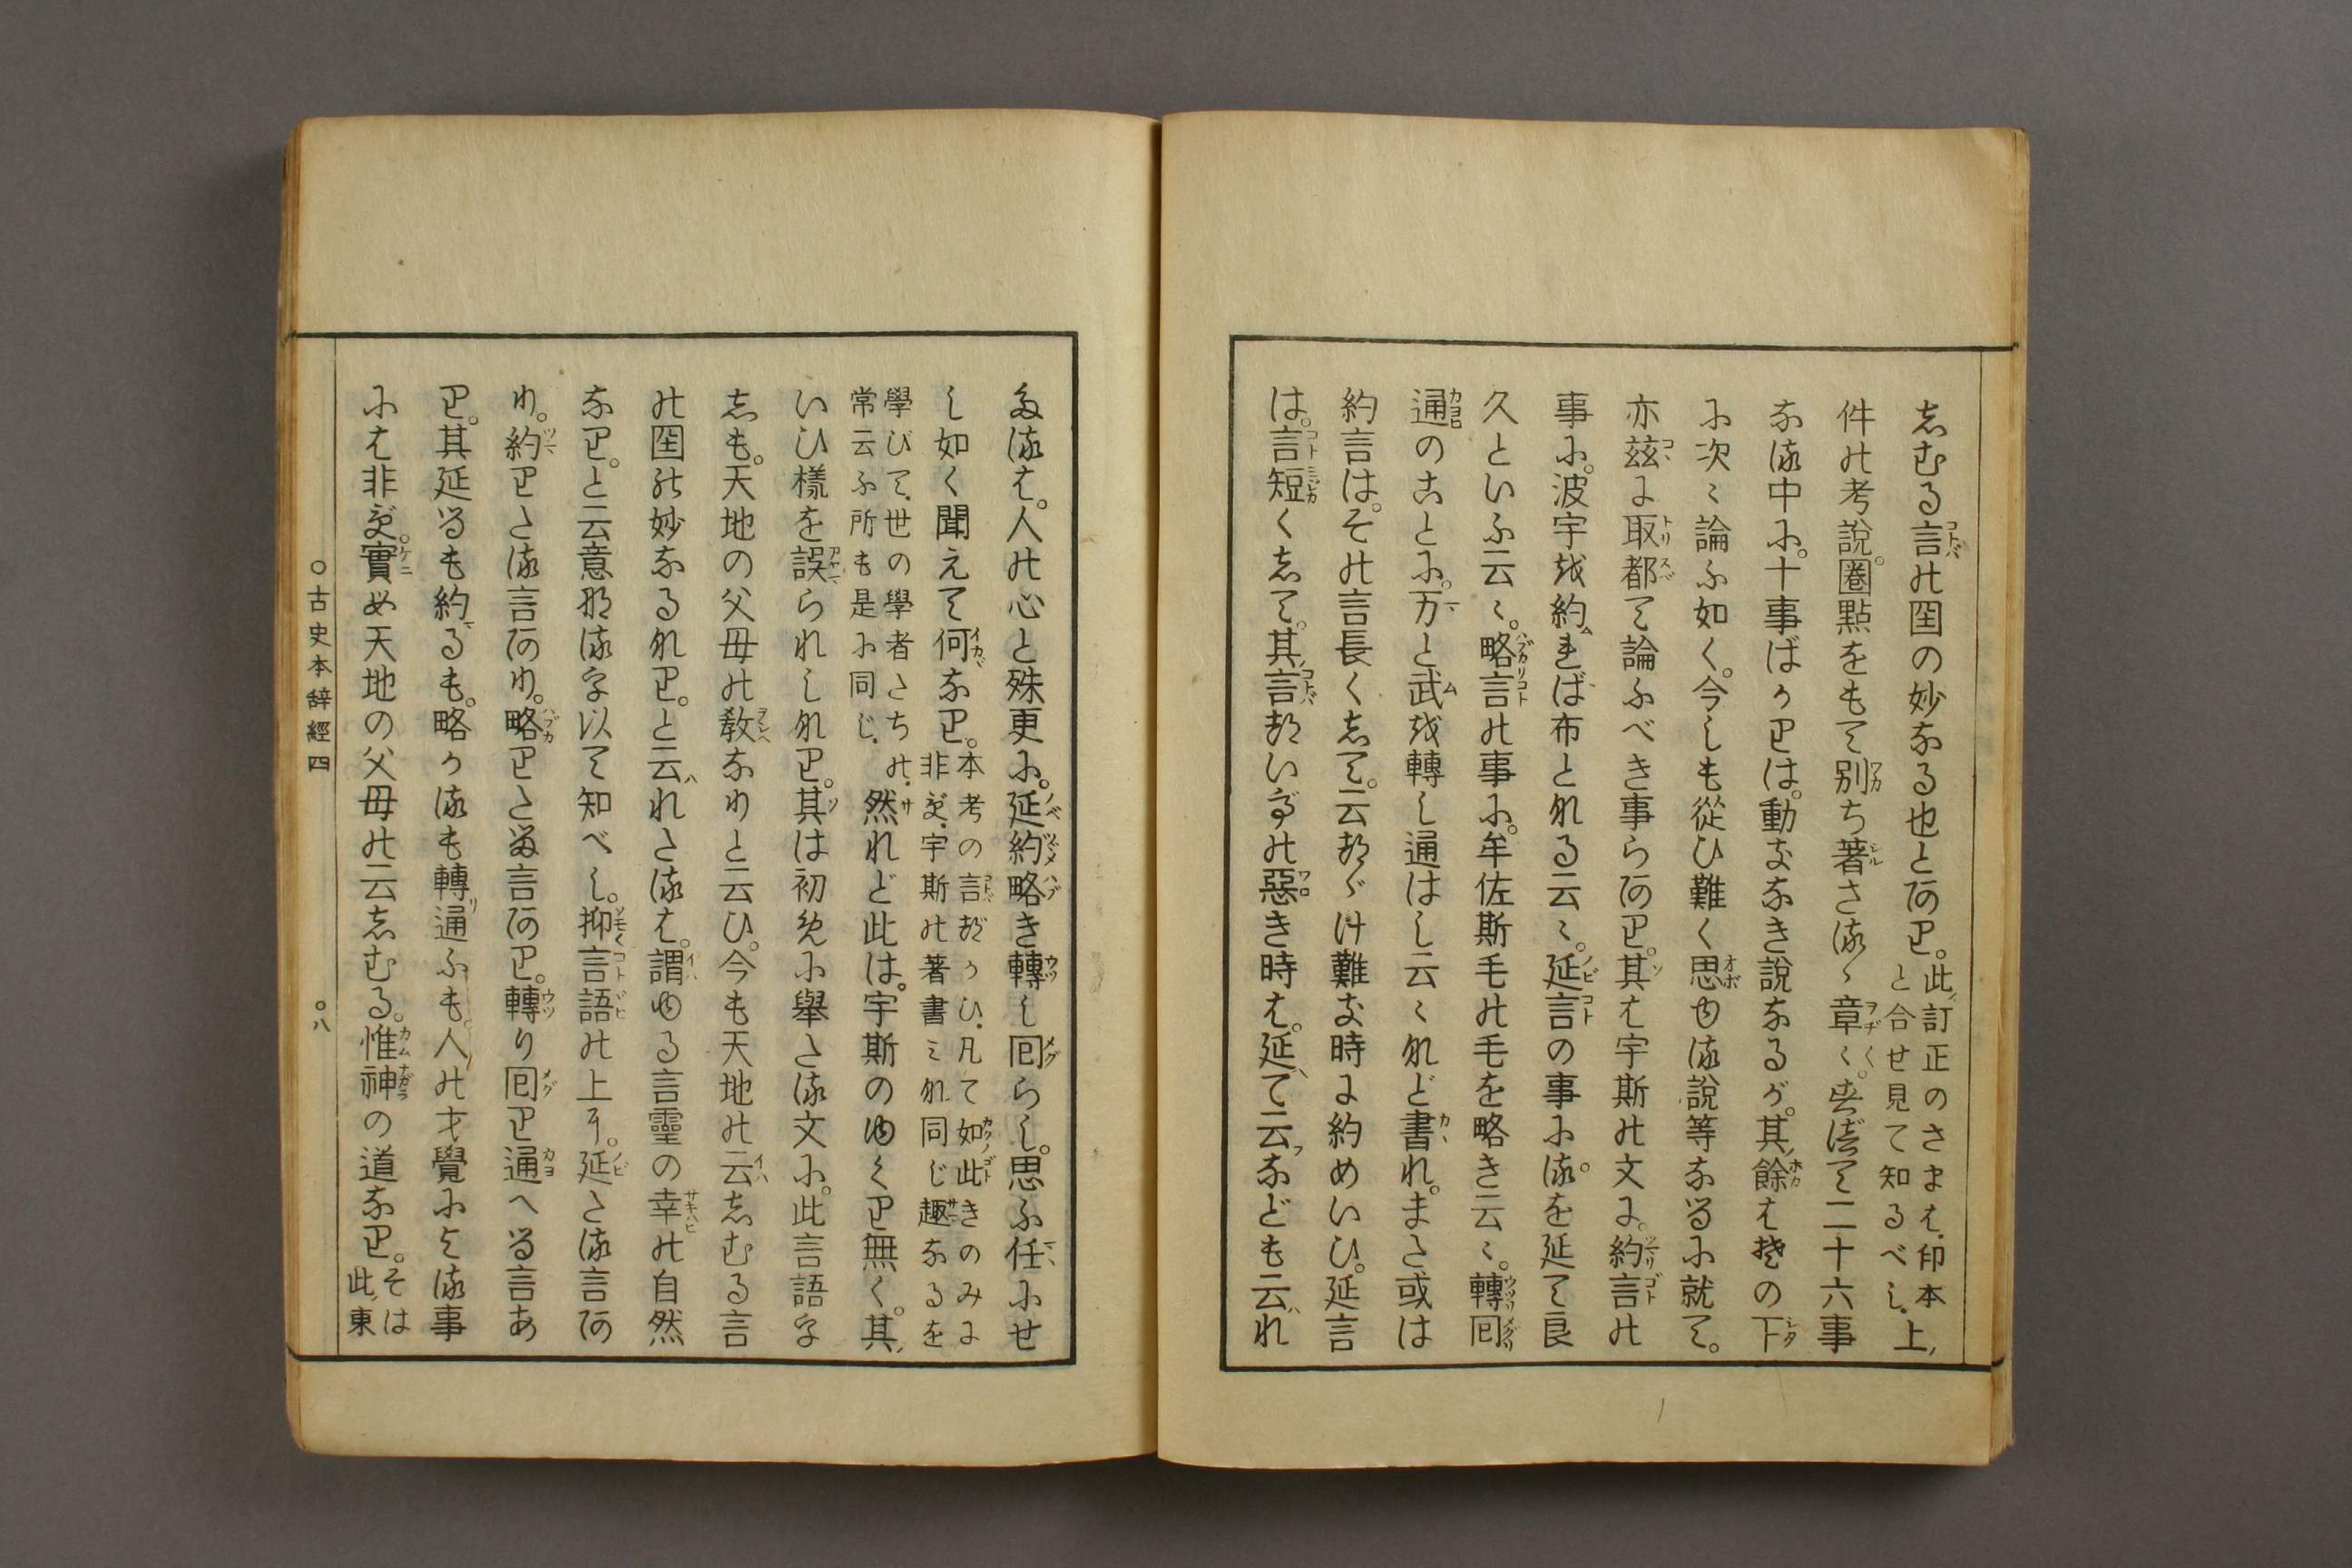 志むる言の国の妙なる也とあり。此訂正のさまは、印本上
と合せ見て知るべし。
件の考説。圏點をもて別ち著さる〻章〻。すべて二十六事
なる中に。十事ばかりは。動なき説なるが。其餘はその下
に次〻論ふ如く。今しも從ひ難く思ゆる説等なるに就て。
亦茲に取都て論ふべき事らあり。其は宇斯の文に。約言の
事に。波宇を約れば布となる云〻。延言の事に。るを延て良
久といふ云〻。略言の事に。牟佐斯毛の毛を略き云〻。轉回
通のことに。万と武を轉し通はし云〻など書れ。また或は
約言は。その言長く志て。云がたけ難き時に約めいひ。延言
は。言短く志て。其言がいひの惡き時は。延て云なども云れ
たるは。人の心と殊更に。延約略き轉し回らし。思ふ任にせ
し如く聞えて何なり。本考の言がかひ、凡て如此きのみに
非ず、宇斯の著書みな同じ趣なるを
學びて、世の學者たちの、
常云ふ所も是に同じ、
然れど此は。宇斯のゆくり無く。其
いひ樣を誤られしなり。其は初めに舉たる文に。此言語を
志も。天地の父母の教なりと云ひ。今も天地の云志むる言
の国の妙なるなり。と云れたるは。謂ゆる言靈の幸の自然
なり。と云意なるを以て知べし。抑言語の上を。延たる言あ
り。約りたる言あり。略りたる言あり。轉り回り通へる言あ
り。其延るも約るも。略かるも轉通ふも。人の才覺による事
には非ず。實め天地の父母の云志むる。惟神の道なり。そは
此東
○古史本辭經四
○八